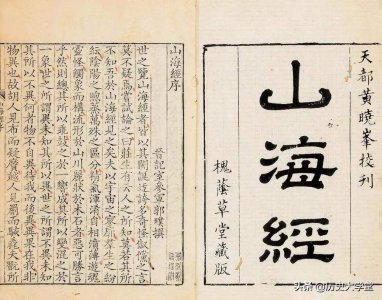 天都黃曉峯校刊
山海經
槐蔭草堂藏版
山海經序
晉記室參軍郭璞撰
世之覽山海經者皆以其閎誕迂誇多奇怪俶儻之言
莫不疑焉嘗試論之曰莊生有云人之所知莫若其所
不知吾於山海經見之矣夫以宇宙之寥廓羣生之紛
紜陰陽之煦蒸萬殊之區分精氣渾淆自相濆薄遊魂
靈怪觸象而構流形於山川麗狀於木石者惡可勝言
乎然則總其所以乖鼓之於一響成其所以變混之於
一象世之所謂異未知其所以異世之所謂不異未知
其所以不異何者物不自異待我而後異異果在我非
物異也故胡人見布而疑黂越人見罽而駭毳夫翫所
头条 @历史大学堂